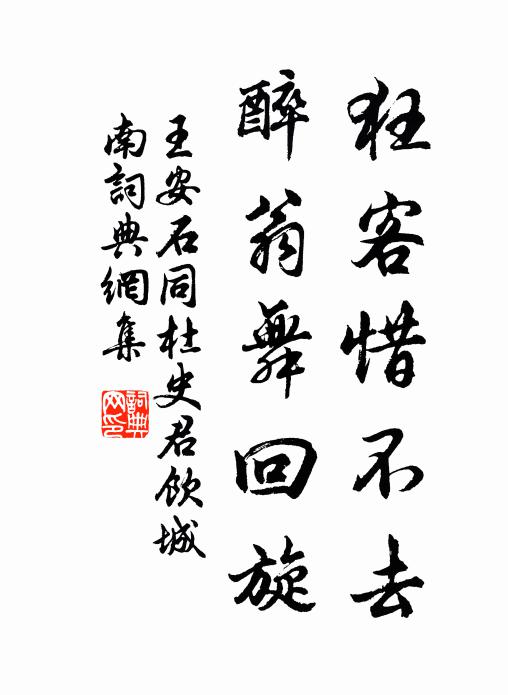 狂客惜不去
醉翁舞回旋
王安石同杜史君飲城
南詞典網集
詞典
网印